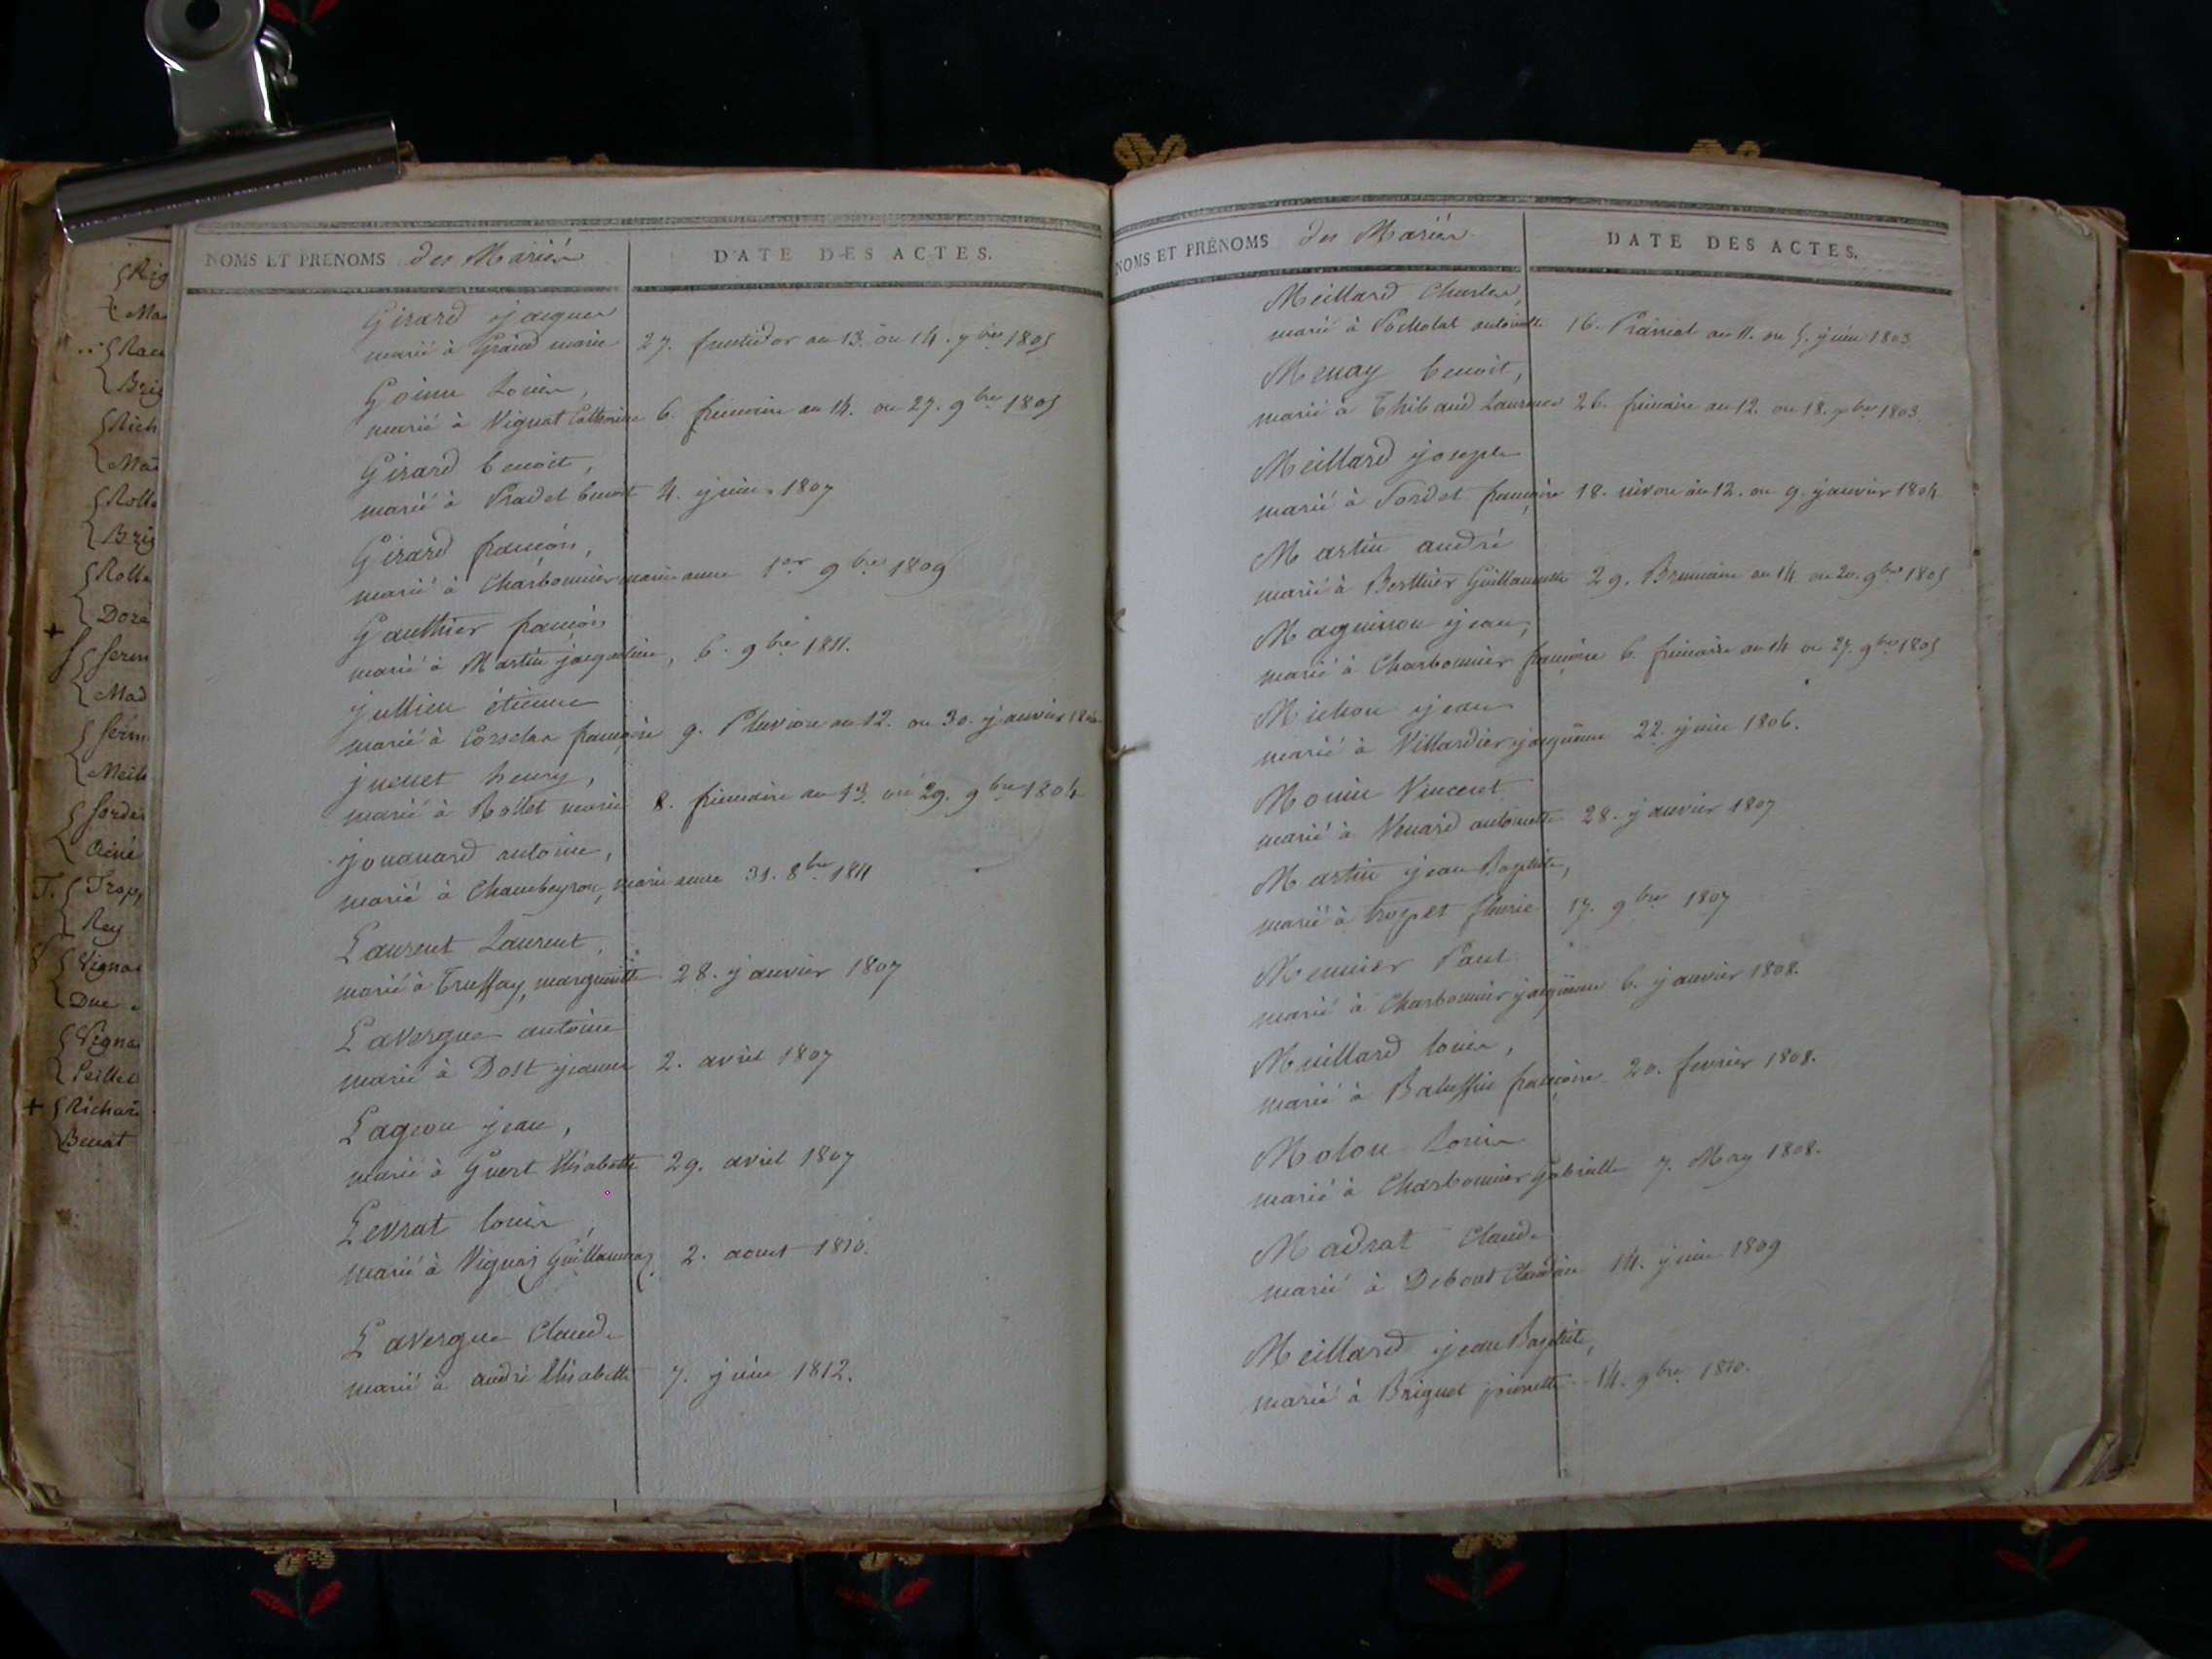 {Rig
{Ma
{Rau
{Brig
{Rich
{Mad
{Rolle
{Brig
{Rolle
{Doré
+
{serm
{Mad
{serm
{Meil
{sorde
T. {Trop
{Rey
{Vigna
{Due
{Vigna
{Peillet
+ {Richar
{Benat
NOMS ET PRENOMS des Mariés DATE DES ACTES.
Girard jacques
marié à Grand marie 27. fructidor an 13. ou 14. 7bre 1805
Goinn Louis,
marié à Vignat Catherine 6. frimaire an 14. ou 27. 9bre 1805
Girard benoit,
marié à Pradel benoit 4. juin 1807
Girard françois,
marié à Charbonnier marie anne 1er 9bre 1809
Gauthier françois
marié à Martin jacqueline, 6. 9bre 1811.
jullien étienne
marié à françoise 9. Pluviose an 12. ou 30. janvier
juenet henry,
marié à Rollet marie 8. frimaire an 13. ou 29. 9bre 1804
jouanard antoine,
marié à Chambeyron, marie anne 31. 8bre 1811
Laurent Laurent,
marié à Truffay, marguerite 28. janvier 1807
Lavergne antoine
marié à Dost jeanne 2. avril 1807
Lageon jean,
marié à Guert Elisabeth 29. avril 1807
Levrat louis,
marié à 2. aout 1810.
Lavergne Claude
marié à andré Elisabeth 7. juin 1812.
NOMS ET PRÉNOMS des Mariés DATE DES ACTES.
Meillard Charles,
marié à antoinette 16. Prairial an 11. ou 5. juin 1803
Menay benoit,
marié à Thibaud Laurence 26. frimaire an 12. ou 18. 1803.
Meillard joseph
marié à Sordet françoise 18. nivose an 12. ou 9. janvier 1804
Martin andré
marié à Berthier Guillaumette 29. Brumaire an 14 ou 20. 9bre 1805
jean,
marié à Charbonnier françoise 6. frimaire an 14 ou 27. 9bre 1805
Michon jean
marié à Villardier 22. juin 1806.
Monin Vincent
marié à Venard antoinette 28. janvier 1807
Martin jean Baptiste,
marié à tropet fleurie 17. 9bre 1807
Meunier Paul
marié à Charbonnier 6. janvier 1808.
Meillard louis,
marié à Baluffin françoise 20. fevrier 1808.
Molon Louis
marié à Charbonnier Gabrielle 7. May 1808.
Madrat Claude
marié à Debout Claudine 14. juin 1809
Meillard jean Baptiste,
marié à Briguet pierrette 14. 9bre 1810.